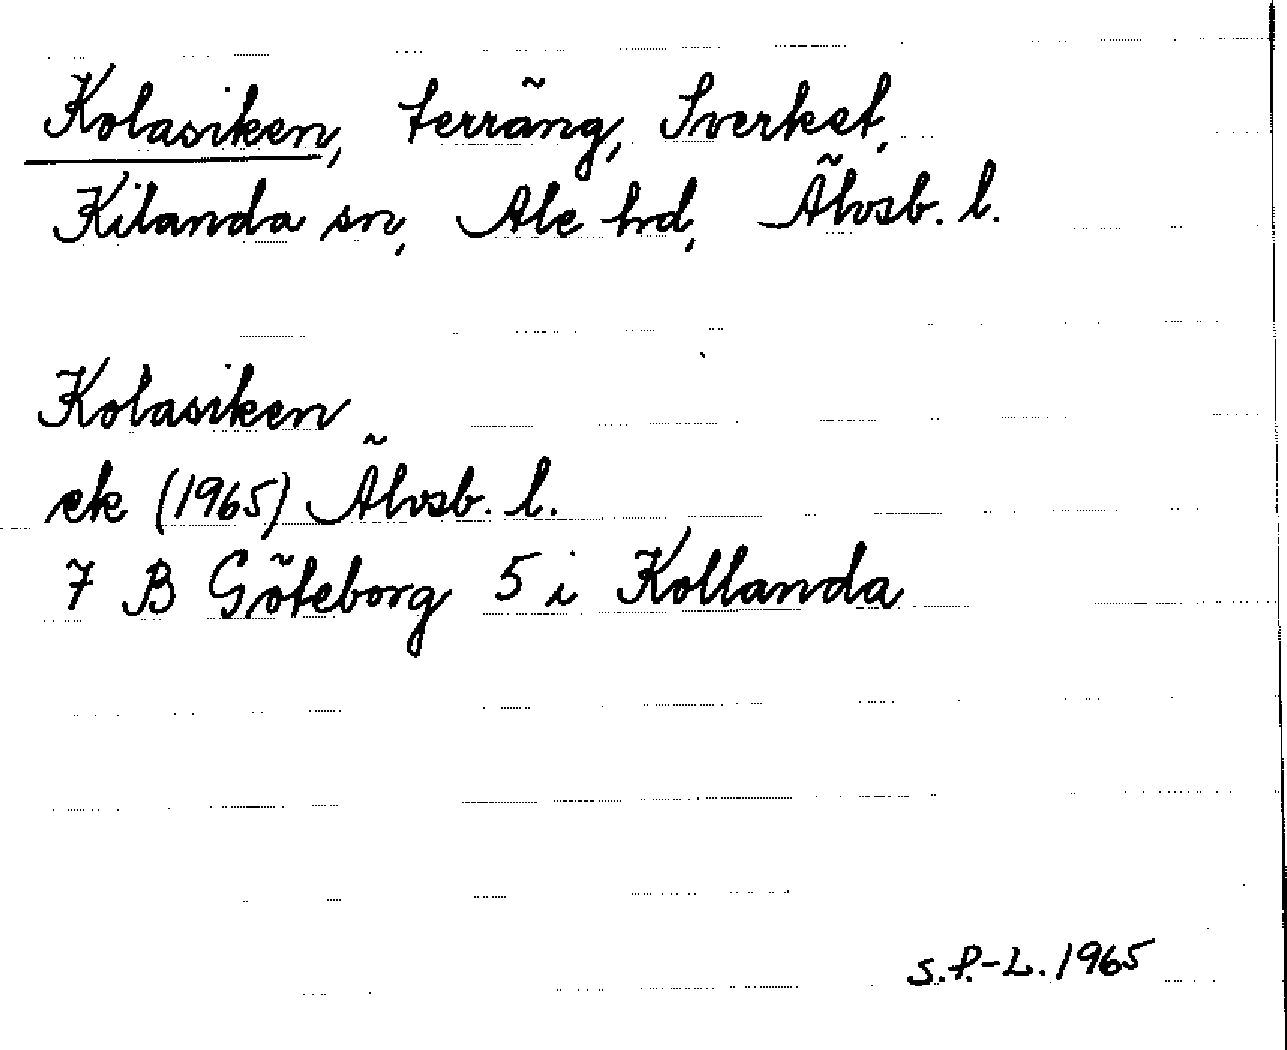 Kolasiken, terräng, Sverket,
Kilanda sn, Ale hd, Älvsb. l.
Kolasiken
ek (1965) Älvsb. l.
7 B Göteborg 5 i Kollanda
S.P.-L. 1965